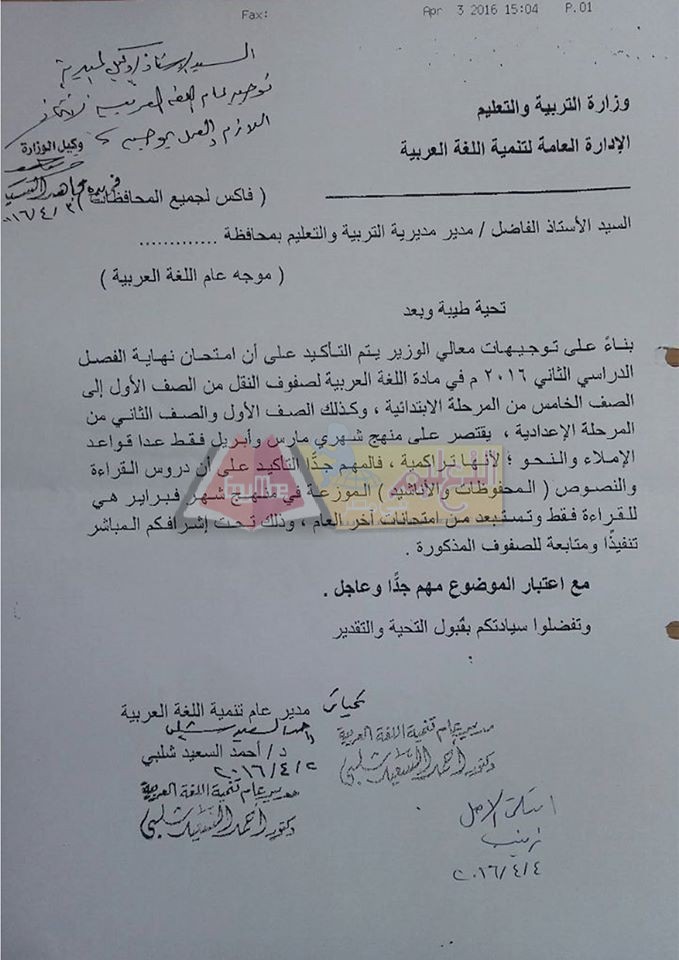 Fax:
Apr 3 2016 15:04 P.01
السيد الأستاذ / وكيل المديرية
توجيه عام اللغة العربية لاتخاذ
اللازم والعمل بموجبه
وكيل الوزارة
وزارة التربية والتعليم
الإدارة العامة لتنمية اللغة العربية
( فاكس لجميع المحافظات
السيد الأستاذ الفاضل / مدير مديرية التربية والتعليم بمحافظة .............
( موجه عام اللغة العربية )
تحية طيبة وبعد
بناءً على توجيهات معالي الوزير يتم التأكيد على أن امتحان نهاية الفصل
الدراسي الثاني ٢٠١٦ م في مادة اللغة العربية لصفوف النقل من الصف الأول إلى
الصف الخامس من المرحلة الابتدائية ، وكذلك الصف الأول والصف الثاني من
المرحلة الإعدادية ، يقتصر على منهج شهري مارس وأبريل فقط عدا قواعد
الإملاء والنحو ؛ لأنها تراكمية ، فالمهم جدًّا التأكيد على أن دروس القراءة
والنصوص ( المحفوظات والأناشيد ) الموزعة في منهج شهر فبراير هي
للقراءة فقط وتستبعد من امتحانات آخر العام ، وذلك تحت إشرافكم المباشر
تنفيذًا ومتابعة للصفوف المذكورة .
مع اعتبار الموضوع مهم جدًّا وعاجل .
وتفضلوا سيادتكم بقبول التحية والتقدير
مدير عام تنمية اللغة العربية
أحمد السعيد شلبي
د/ أحمد السعيد شلبي
٢٠١٦/٤/٢
مدير عام تنمية اللغة العربية
دكتور أحمد السعيد شلبي
مدير عام تنمية اللغة العربية
دكتور أحمد السعيد شلبي
استلمت الأصل
زينب
٢٠١٦/٤/٤